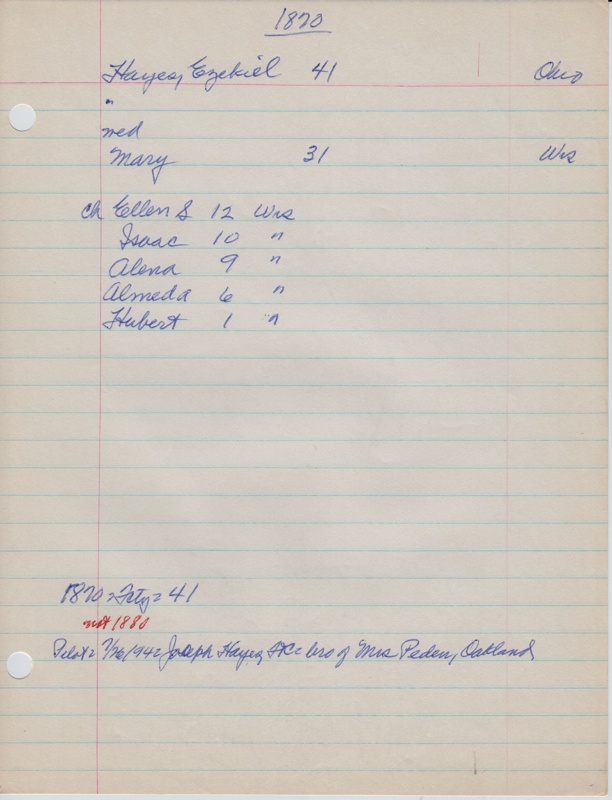 1870
Hayes, Ezekiel 41 Ohio
"
med
Mary 31 Wis
ch Ellen S 12 Wis
Isaac 10 "
Alena 9 "
Almeda 6 "
Hubert 1 "
1870 = = 41
not 1880
Pilot = 7/26/94 = Joseph Hayes, = bro of Mrs Peden, Oakland